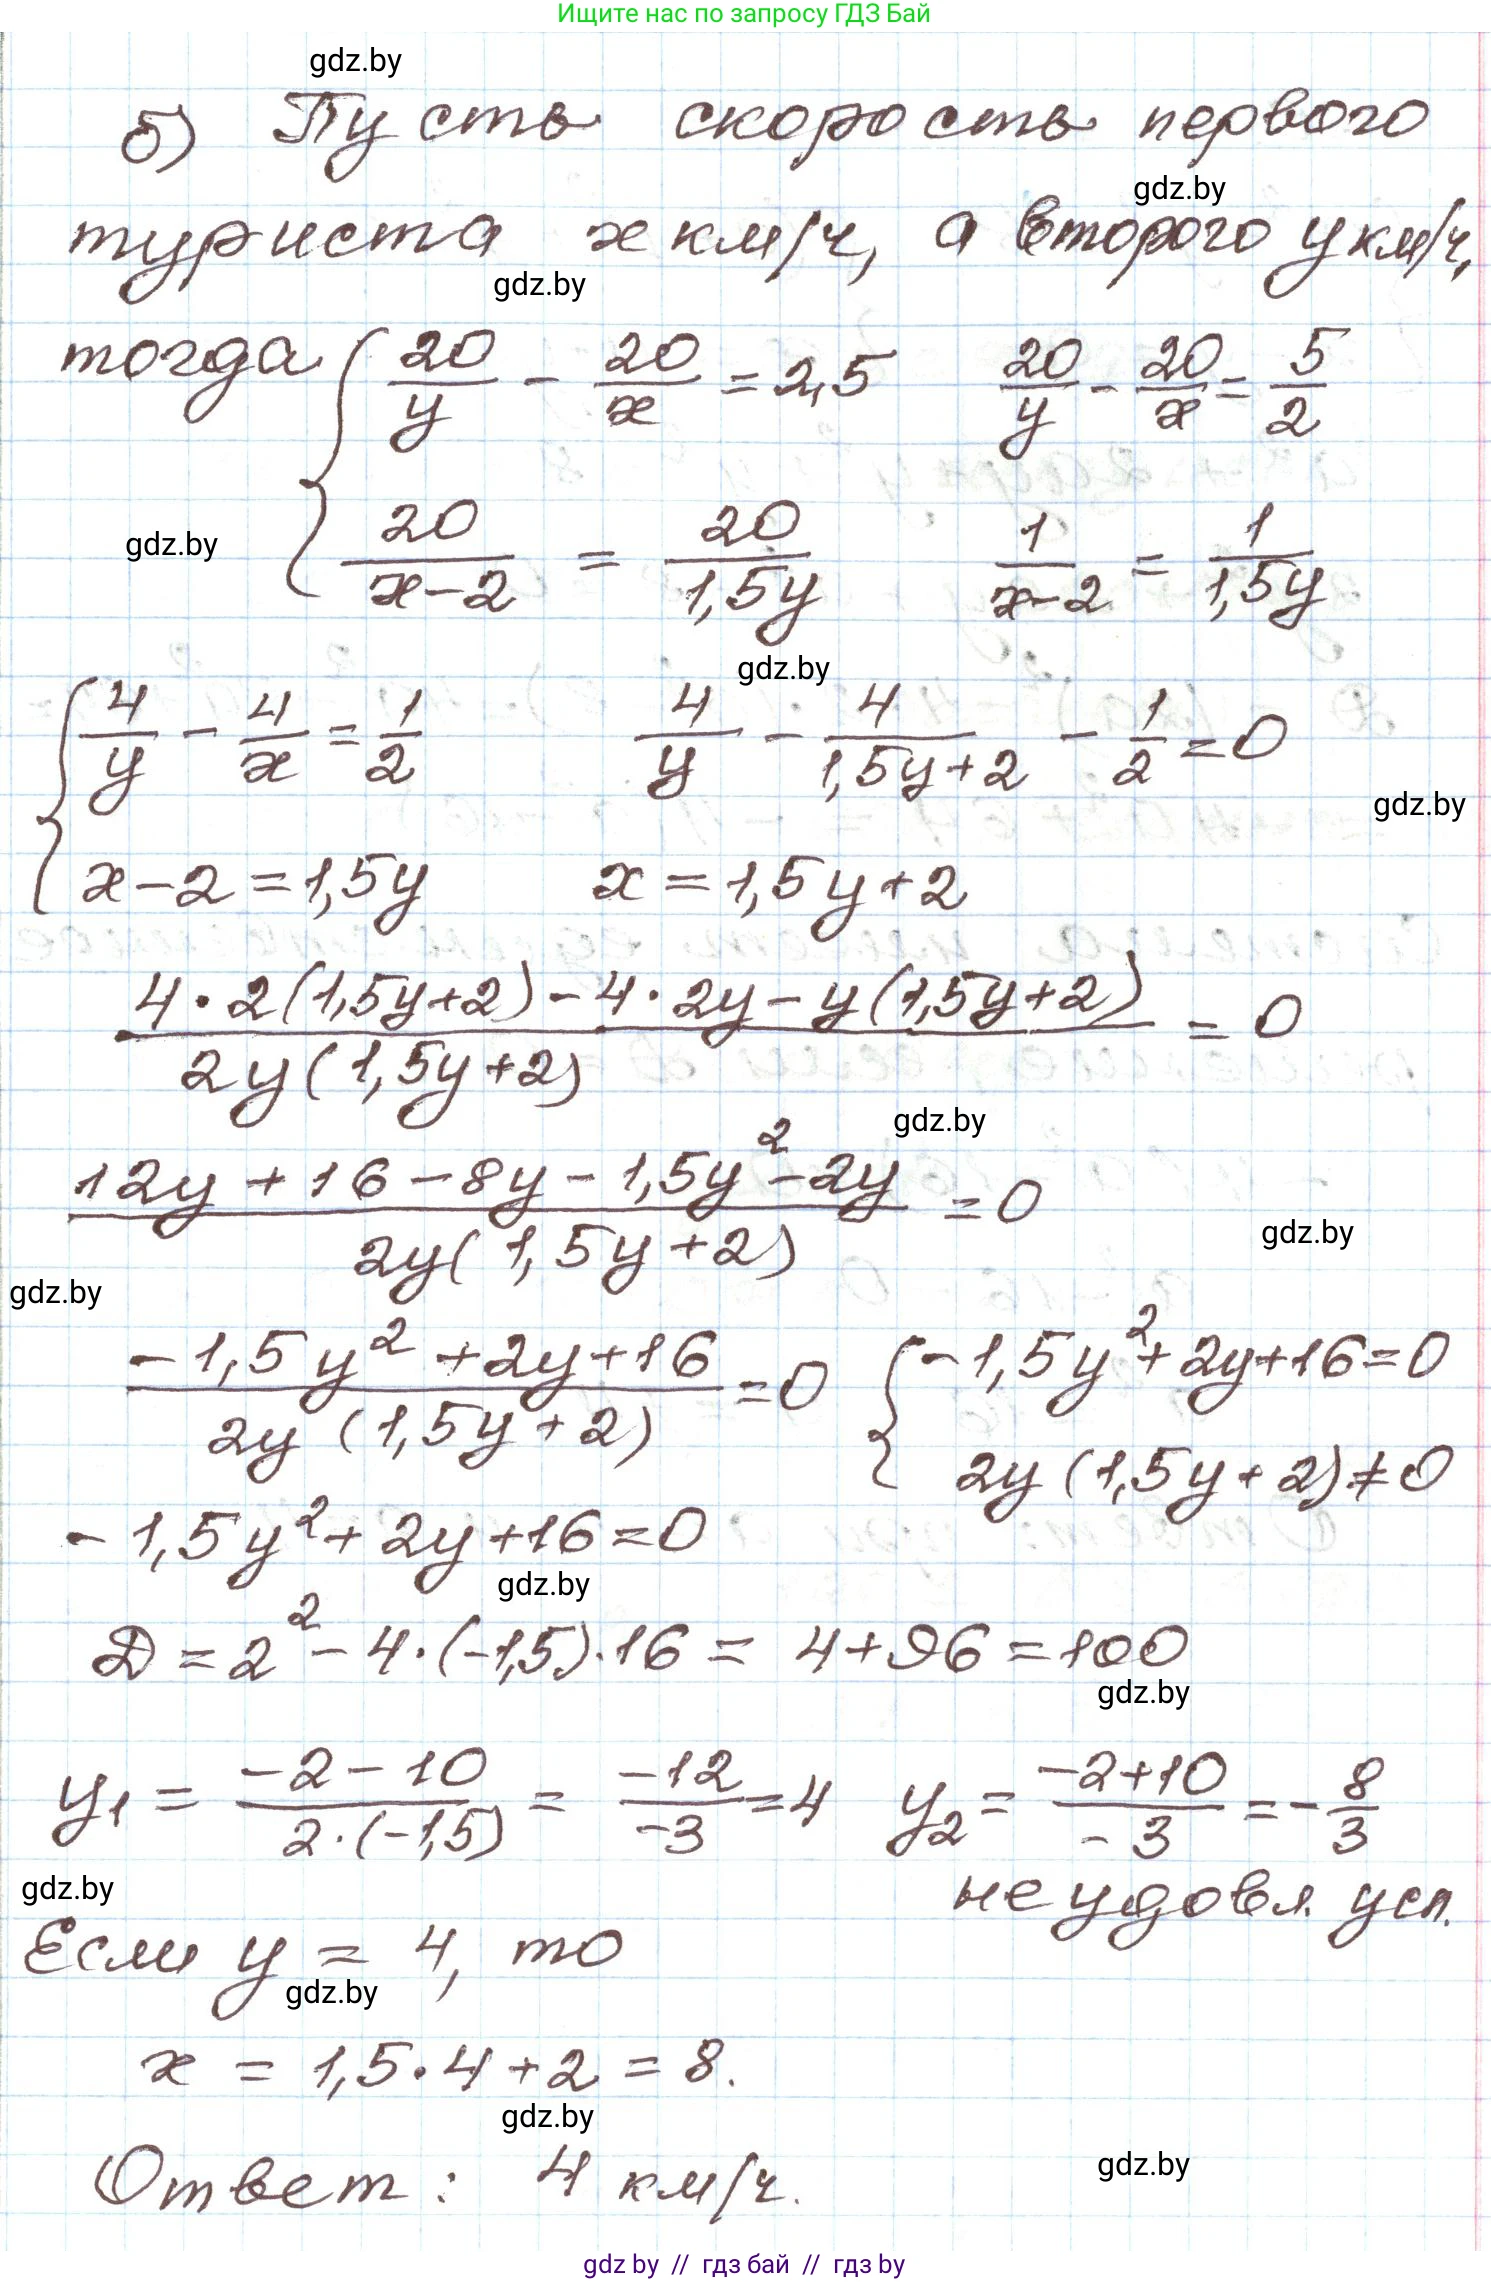 Ищите нас по запросу ГДЗ Бай
gdz.by
б) Пусть скорость первого
gdz.by
туриста x км/ч, а второго y км/ч,
gdz.by
тогда { 20/y - 20/x = 2,5   20/y - 20/x = 5/2
gdz.by
20/(x-2) = 20/(1,5y)   1/(x-2) = 1/(1,5y)
gdz.by
{ 4/y - 4/x = 1/2   4/y - 4/(1,5y+2) - 1/2 = 0
gdz.by
x - 2 = 1,5y   x = 1,5y + 2
(4·2(1,5y+2) - 4·2y - y(1,5y+2))/(2y(1,5y+2)) = 0
gdz.by
(12y + 16 - 8y - 1,5y² - 2y)/(2y(1,5y+2)) = 0
gdz.by
gdz.by
(-1,5y² + 2y + 16)/(2y(1,5y+2)) = 0   { -1,5y² + 2y + 16 = 0
2y(1,5y+2) ≠ 0
-1,5y² + 2y + 16 = 0
gdz.by
D = 2² - 4·(-1,5)·16 = 4 + 96 = 100
gdz.by
y₁ = (-2-10)/(2·(-1,5)) = -12/-3 = 4   y₂ = (-2+10)/-3 = -8/3
gdz.by
не удовл. усл.
Если y = 4, то
gdz.by
x = 1,5·4 + 2 = 8.
gdz.by
gdz.by
Ответ: 4 км/ч.
gdz by // гдз бай // гдз by